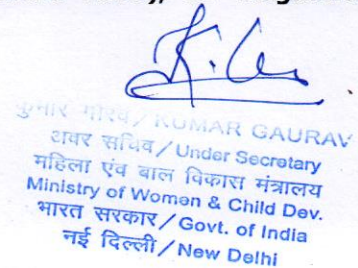 कुमार गौरव/KUMAR GAURAV
अवर सचिव/Under Secretary
महिला एंव बाल विकास मंत्रालय
Ministry of Women & Child Dev.
भारत सरकार/Govt. of India
नई दिल्ली/New Delhi